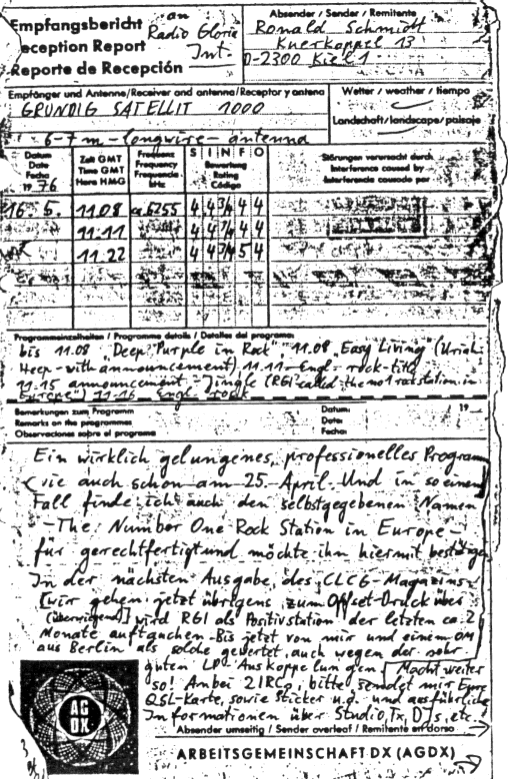 Empfangsbericht
Reception Report
Reporte de Recepción
an
Radio Gloria
Int.
Absender / Sender / Remitente
Ronald Schmidt
Knerkoppel 13
D-2300 Kiel 1
Empfänger und Antenne/Receiver and antenna/Receptor y antena
GRUNDIG SATELLIT 1000
6-7 m - longwire - antenna
Wetter / weather / tiempo
Landschaft/landscape/paisaje
Datum
Date
Fecha
1976
Zeit GMT
Time GMT
Hora HMG
Frequenz
Frequency
Frequencia
kHz
S I N F O
Bewertung
Rating
Código
Störungen verursacht durch
Interference caused by
Interferencia causada por
16. 5. 11.08 ca. 6255 4 4 3/4 4 4
11.11 4 4 4 4
11.22 4 4 5 4
Programmeinzelheiten / Programme details / Detalles del programa:
bis 11.08 "Deep Purple in Rock" 11.08 "Easy Living" (Uriah
Heep - with announcement) 11.11 - Engl. rock-title
11.15 announcement - Jingle (RGI called the no 1 rockstation in
Europe") 11.16 Engl. rock
Bemerkungen zum Programm
Remarks on the programmes
Observaciones sobre el programa
Datum:
Date:
Fecha:
19
Ein wirklich gelungenes, professionelles Programm
wie auch schon am 25. April. Und in so einem
Fall finde ich auch den selbstgegebenen Namen
- The Number One Rock Station in Europe -
für gerechtfertigt und möchte ihn hiermit bestätigen
In der nächsten Ausgabe des CLCG-Magazins
[wir gehen jetzt übrigens zum Offset-Druck über
(überwiegend)] wird RGI als Positivstation der letzten ca. 2
Monate auftauchen. Bis jetzt von mir und einem OM
aus Berlin als solche gewertet, auch wegen der sehr
guten LP-Auskoppelungen. Macht weiter
so! Anbei 2 IRCs, bitte sendet mir Eure
QSL-Karte, sowie Sticker u.a. und ausführliche
Informationen über Studio, Tx, DJs, etc.!
Absender umseitig / Sender overleaf / Remitente en dorso
AG
DX
ARBEITSGEMEINSCHAFT DX (AGDX)